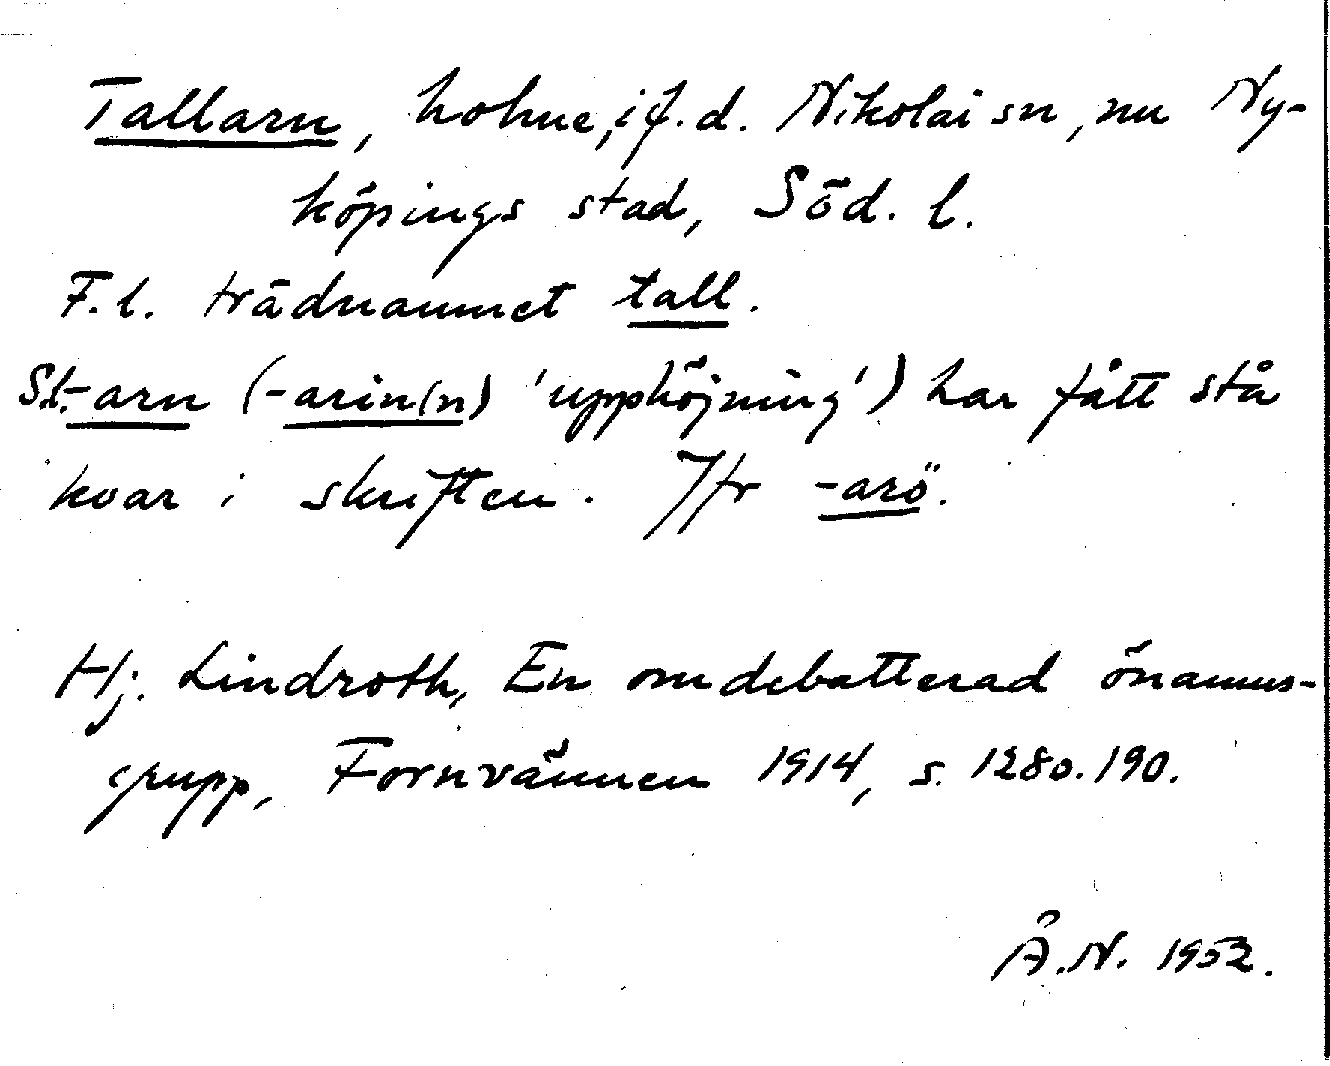 Tallarn, holme, i f.d. Nikolai sn, nu Ny-
köpings stad, Söd. l.
F.l. trädnamnet tall.
S.l. -arn (-arin(n) 'upphöjning') har fått stå
kvar i skriften. Jfr -arö.
Hj. Lindroth, En omdebatterad önamns-
grupp, Fornvännen 1914, s. 128o.190.
Å.N. 1952.